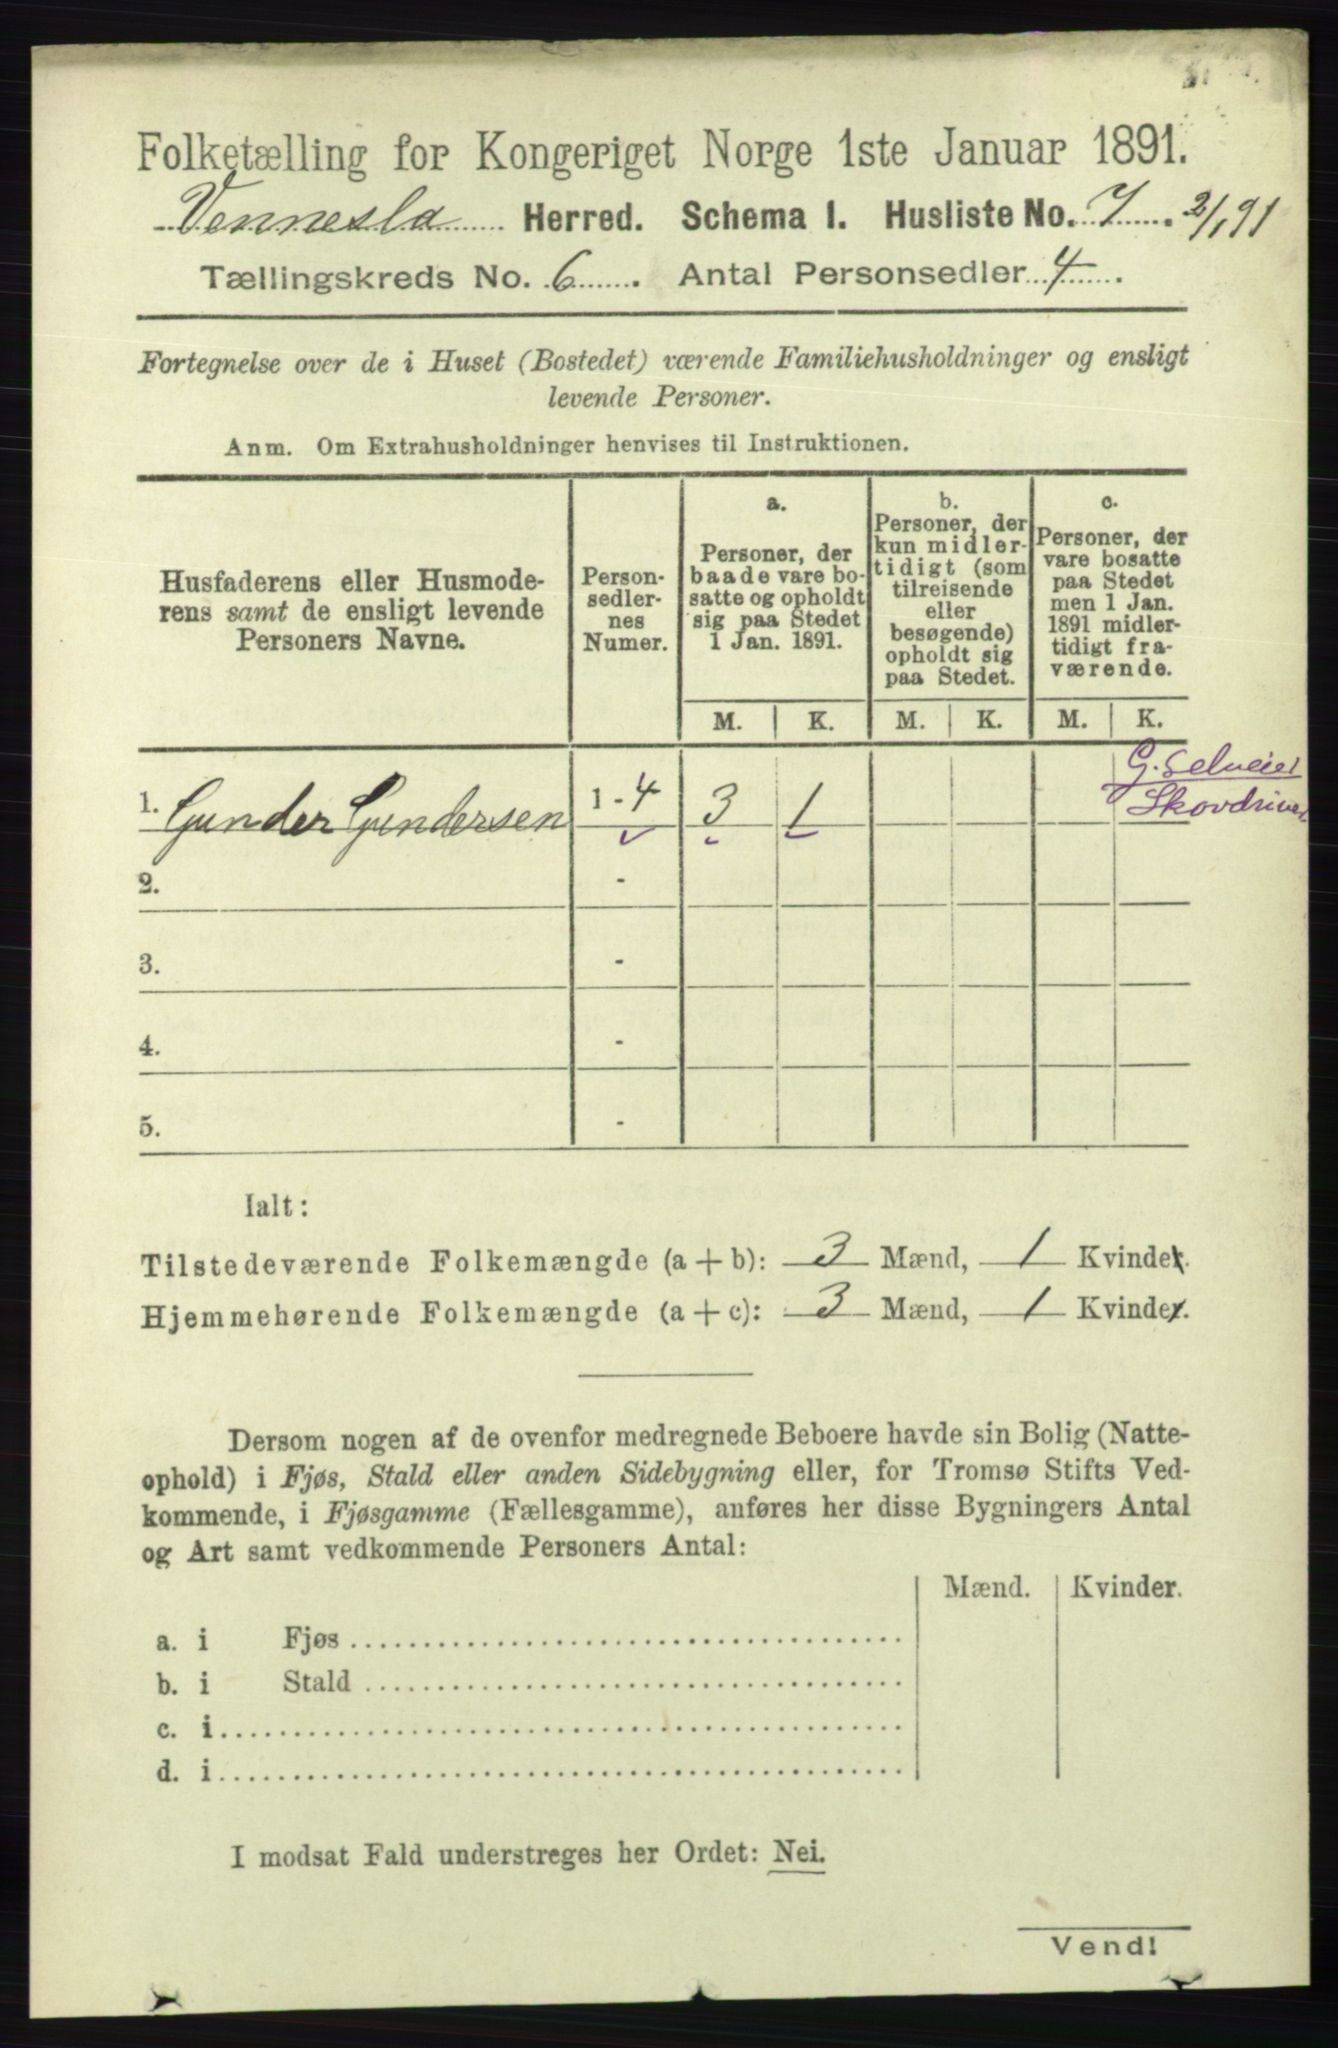 Folketælling for Kongeriget Norge 1ste Januar 1891.
Vennesla Herred. Schema I. Husliste No. 7. 2/1 91
Tællingskreds No. 6. Antal Personsedler 4.
Fortegnelse over de i Huset (Bostedet) værende Familiehusholdninger og ensligt
levende Personer.
Anm. Om Extrahusholdninger henvises til Instruktionen.
Husfaderens eller Husmode-
rens samt de ensligt levende
Personers Navne.
Person-
sedler-
nes
Numer.
a.
Personer, der
baade vare bo-
satte og opholdt
sig paa Stedet
1 Jan. 1891.
b.
Personer, der
kun midler-
tidigt (som
tilreisende
eller
besøgende)
opholdt sig
paa Stedet.
c.
Personer, der
vare bosatte
paa Stedet
men 1 Jan.
1891 midler-
tidigt fra-
værende.
M. K. M. K. M. K.
G. Selveier
Skovdriver
1. Gunder Gundersen 1 - 4 3 1
2. -
3. -
4. -
5. -
Ialt:
Tilstedeværende Folkemængde (a + b): 3 Mænd, 1 Kvinder.
Hjemmehørende Folkemængde (a + c): 3 Mænd, 1 Kvinder.
Dersom nogen af de ovenfor medregnede Beboere havde sin Bolig (Natte-
ophold) i Fjøs, Stald eller anden Sidebygning eller, for Tromsø Stifts Ved-
kommende, i Fjøsgamme (Fællesgamme), anføres her disse Bygningers Antal
og Art samt vedkommende Personers Antal:
Mænd. Kvinder.
a. i Fjøs
b. i Stald
c. i
d. i
I modsat Fald understreges her Ordet: Nei.
Vend!